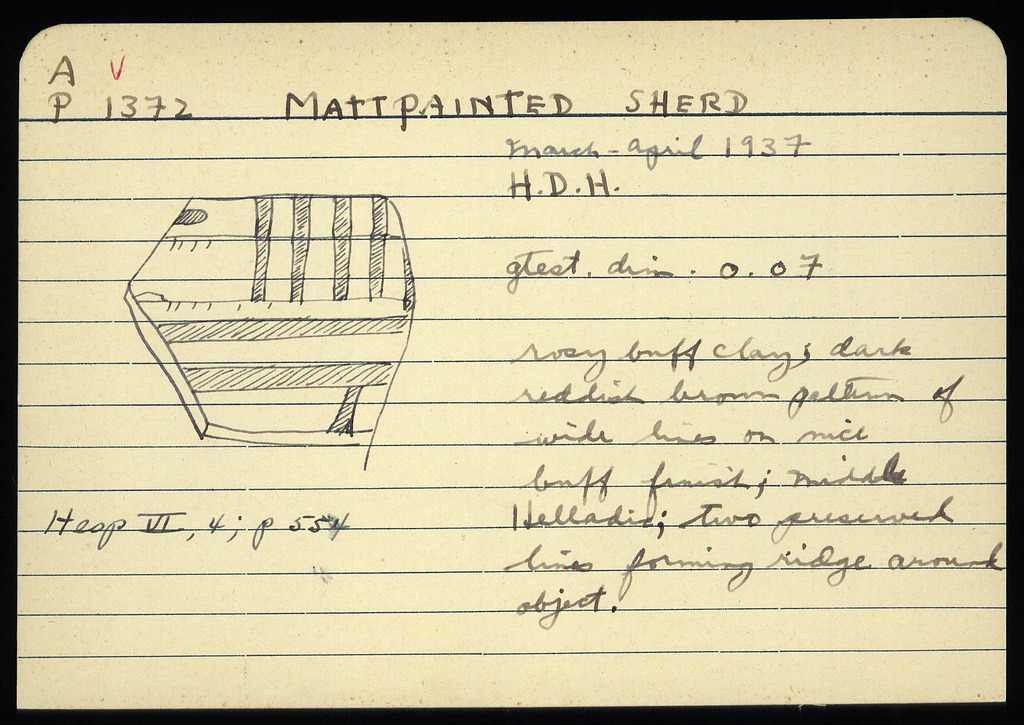 A V
P 1372 MATTPAINTED SHERD
March - April 1937
H.D.H.
gtest. dim. 0.07
rosy buff clay; dark
reddish brown pattern of
wide lines on nice
buff finish; Middle
Helladic; two preserved
lines forming ridge around
object.
Hesp VI, 4; p 554